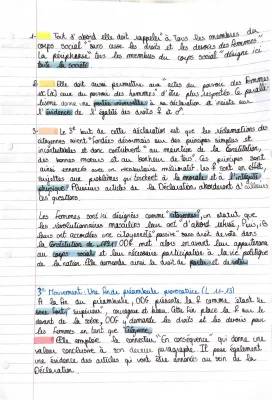 1. Tout d'abord elle doit rappeler à "tous les membres du
corps social" sans cesse les droits et les devoirs des femmes".
La périphrase "tous les membres du corps social" désigne ici
toute la société.
2. Elle doit aussi permettre aux "actes du pouvoir des femmes
et ceux du pouvoir des hommes" d'être plus respectés. Ce parallé-
lisme donne une portée universelle à sa déclaration et insiste sur
l'évidence de l'égalité des droits ♀ et ♂.
3. Le 3e but de cette déclaration est que les réclamations des
citoyennes soient "fondées désormais sur des principes simples et
incontestables et donc contribuent "au maintien de la Constitution,
des bonnes moeurs et au bonheur de tous". Ces principes sont
aussi énoncés avec un vocabulaire
sujettes aux problèmes qui touchent à la morale et à l'intégrité
physique! Plusieurs articles de la Déclaration aborderont d'ailleurs
ces questions.
Les femmes sont ici désignées comme "citoyennes", un statut que
les révolutionnaires
la Constitution de 1791! ODG met alors en avant leur appartenance
au corps social et leur nécessaire participation à la vie politique
de la nation. Elle demande ainsi le droit de parler et de voter.
3e Mouvement: Une fin de préambule provocatrice (L 11-13)
A la fin du préambule, ODG présente la ♀ comme étant le
sexe fort, "supérieur", courageux et beau. Cette fois placé le ♀ sur le
devant de la scène, ODG y demande les droits et les devoirs pour
les femmes en tant que citoyenne.
Elle emploie le connecteur "En conséquence" qui donne une
valeur conclusive à son dernier paragraphe. Il pose également
une évidence des articles qui vont être énoncés au sein de la
Déclaration.